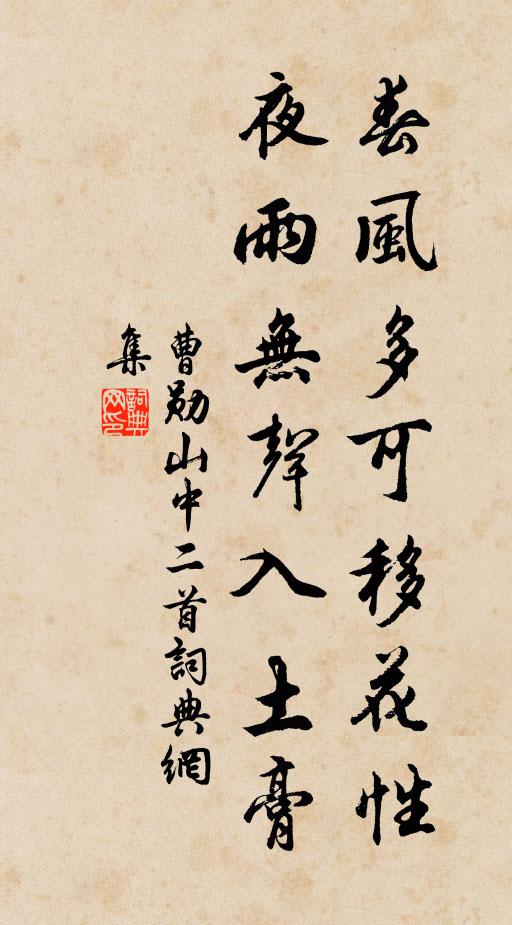 春風多可移花性
夜雨無聲入土膏
曹勛山中二首詞典網
集
詞典
网印